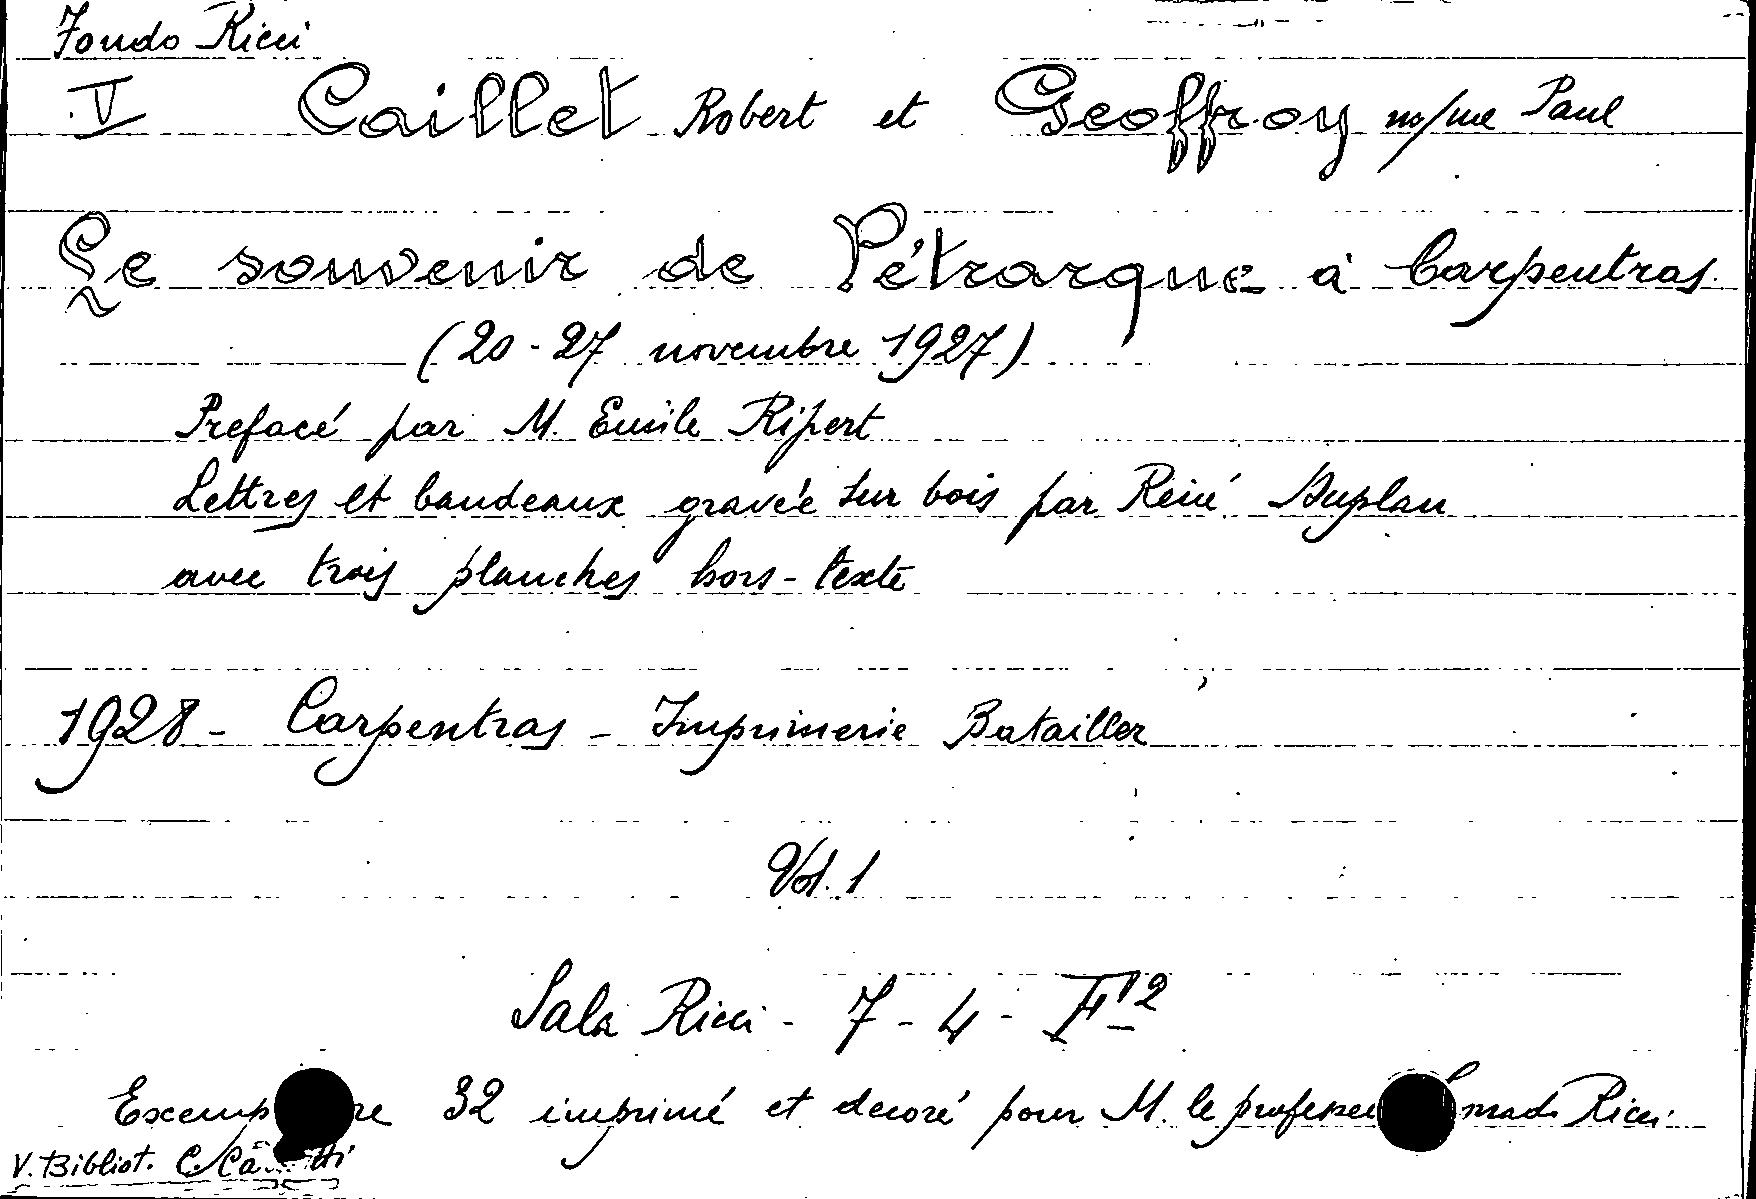 Fondo Ricci
V Caillet Robert et Geoffroy m/me Paul
Le souvenir de Pétrarque à Carpentras.
(20-27 novembre 1927)
Prefacé par M. Emile Ripert
Lettres et bandeaux gravée sur bois par Réné Duplan
avec trois planches hors-texte
1928 - Carpentras - Imprimerie Batailler
Vol. 1
Sala Ricci - 7 - 4 -
32 imprimé et decoré pour M. le Ricci.
V. Bibliot. C.